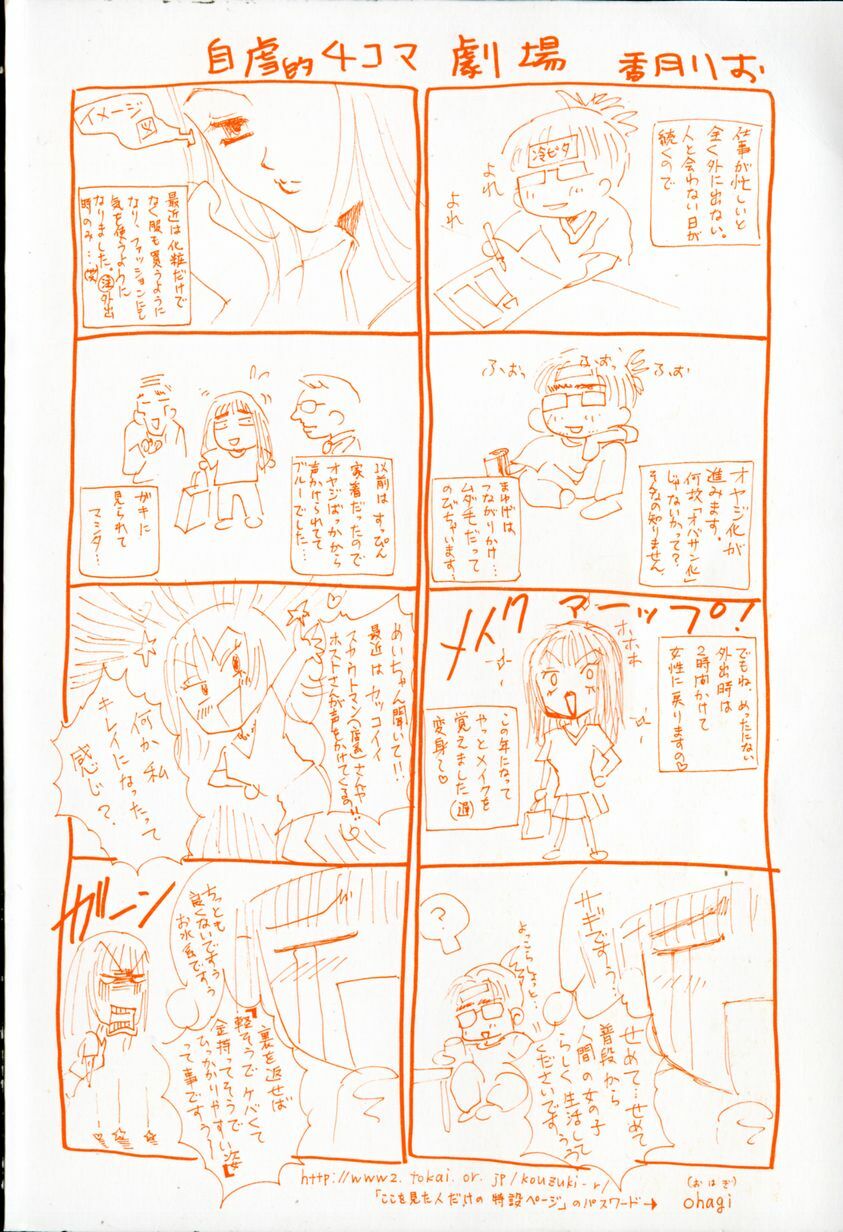 自虐的4コマ劇場 香月りお
仕事が忙しいと
全く外に出ない。
人と会わない日が
続くので
冷ピタ
よれ
よれ
オヤジ化が
進みます。
何故「オバサン化」
じゃないかって?
そんなの知りません
ふぉっ
ふぉっ
ふぉ
まゆげは
つながりかけ…
ムダ毛だって
のびちゃいます…
メイクアーップ!
でもね、めったにない
外出時は
2時間かけて
女性に戻りますの♡
ホホホ
この年になって
やっとメイクを
覚えました(遅)
変身〜♡
サギですぅ…
せめて…せめて
普段から
人間の女の子
らしく生活して
くださいですぅぅ
?
よっこらしょっと…
イメージ図
最近は化粧だけで
なく服も買うように
なり、ファッションにも
気を使うように
なりました。(注)外出
時のみ…(汗)
以前はすっぴん
家着だったので
オヤジばっかから
声かけられてて
ブルーでした…
ガキに
見られて
マシタ…
めいちゃん聞いて!!
最近はカッコイイ
スカウトマン(風)さんや
ホストさんが声をかけてくるの!!
何か私
キレイになったって
感じ?
ガーン
ちっとも
良くないですぅ
お水系ですぅ
裏を返せば
『軽そうでケバくて
金持ってそうで
ひっかかりやすい姿』
って事ですぅ〜
http://www2.tokai.or.jp/kouzuki-r/
「ここを見た人だけの特設ページ」のパスワード→
(おはぎ)
ohagi